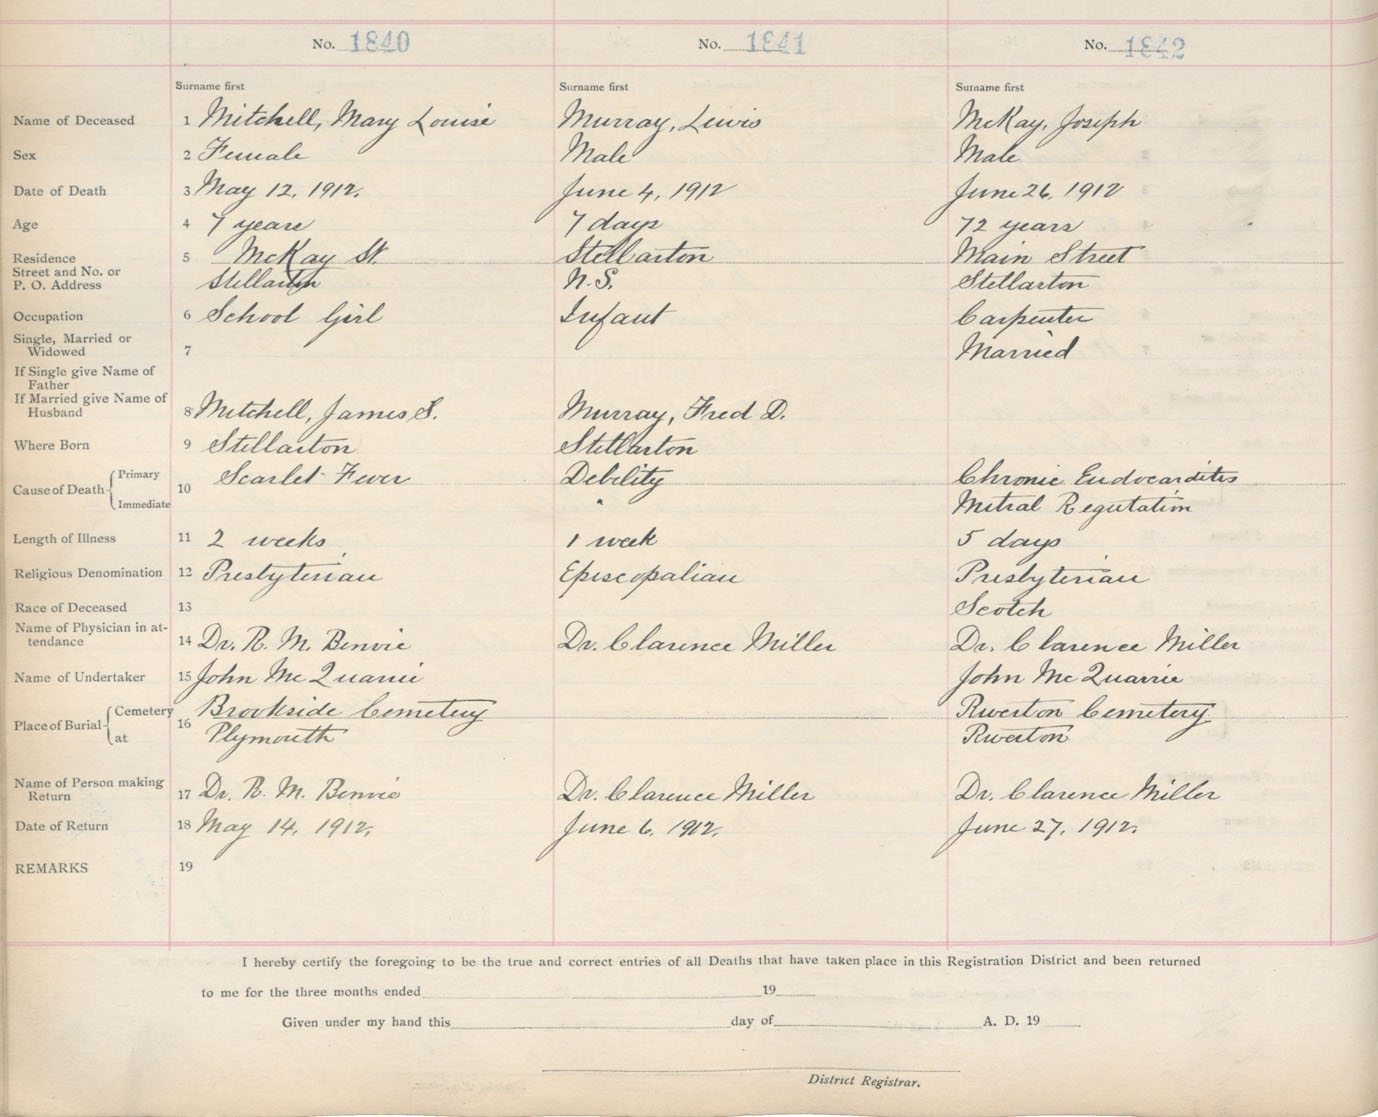 No. 1840 No. 1841 No. 1842
Surname first Surname first Surname first
Name of Deceased 1 Mitchell, Mary Louise Murray, Lewis McKay, Joseph
Sex 2 Female Male Male
Date of Death 3 May 12, 1912. June 4, 1912 June 26, 1912
Age 4 7 years 7 days 72 years
Residence 5 McKay St. Stellarton Main Street
Street and No. or
P. O. Address Stellarton N.S. Stellarton
Occupation 6 School Girl Infant Carpenter
Single, Married or
Widowed 7 Married
If Single give Name of
Father
If Married give Name of
Husband 8 Mitchell, James S. Murray, Fred D.
Where Born 9 Stellarton Stellarton
Cause of Death Primary 10 Scarlet Fever Debility Chronic Endocarditis
Immediate " Mitral Regutation
Length of Illness 11 2 weeks 1 week 5 days
Religious Denomination 12 Presbyterian Episcopalian Presbyterian
Race of Deceased 13 Scotch
Name of Physician in at-
tendance 14 Dr. R. M. Benvie Dr. Clarence Miller Dr. Clarence Miller
Name of Undertaker 15 John McQuarrie John McQuarrie
Place of Burial Cemetery 16 Brookside Cemetery Riverton Cemetery
at Plymouth Riverton
Name of Person making
Return 17 Dr. R. M. Benvie Dr. Clarence Miller Dr. Clarence Miller
Date of Return 18 May 14, 1912. June 6, 1912. June 27, 1912.
REMARKS 19
I hereby certify the foregoing to be the true and correct entries of all Deaths that have taken place in this Registration District and been returned
to me for the three months ended 19
Given under my hand this day of A. D. 19
District Registrar.